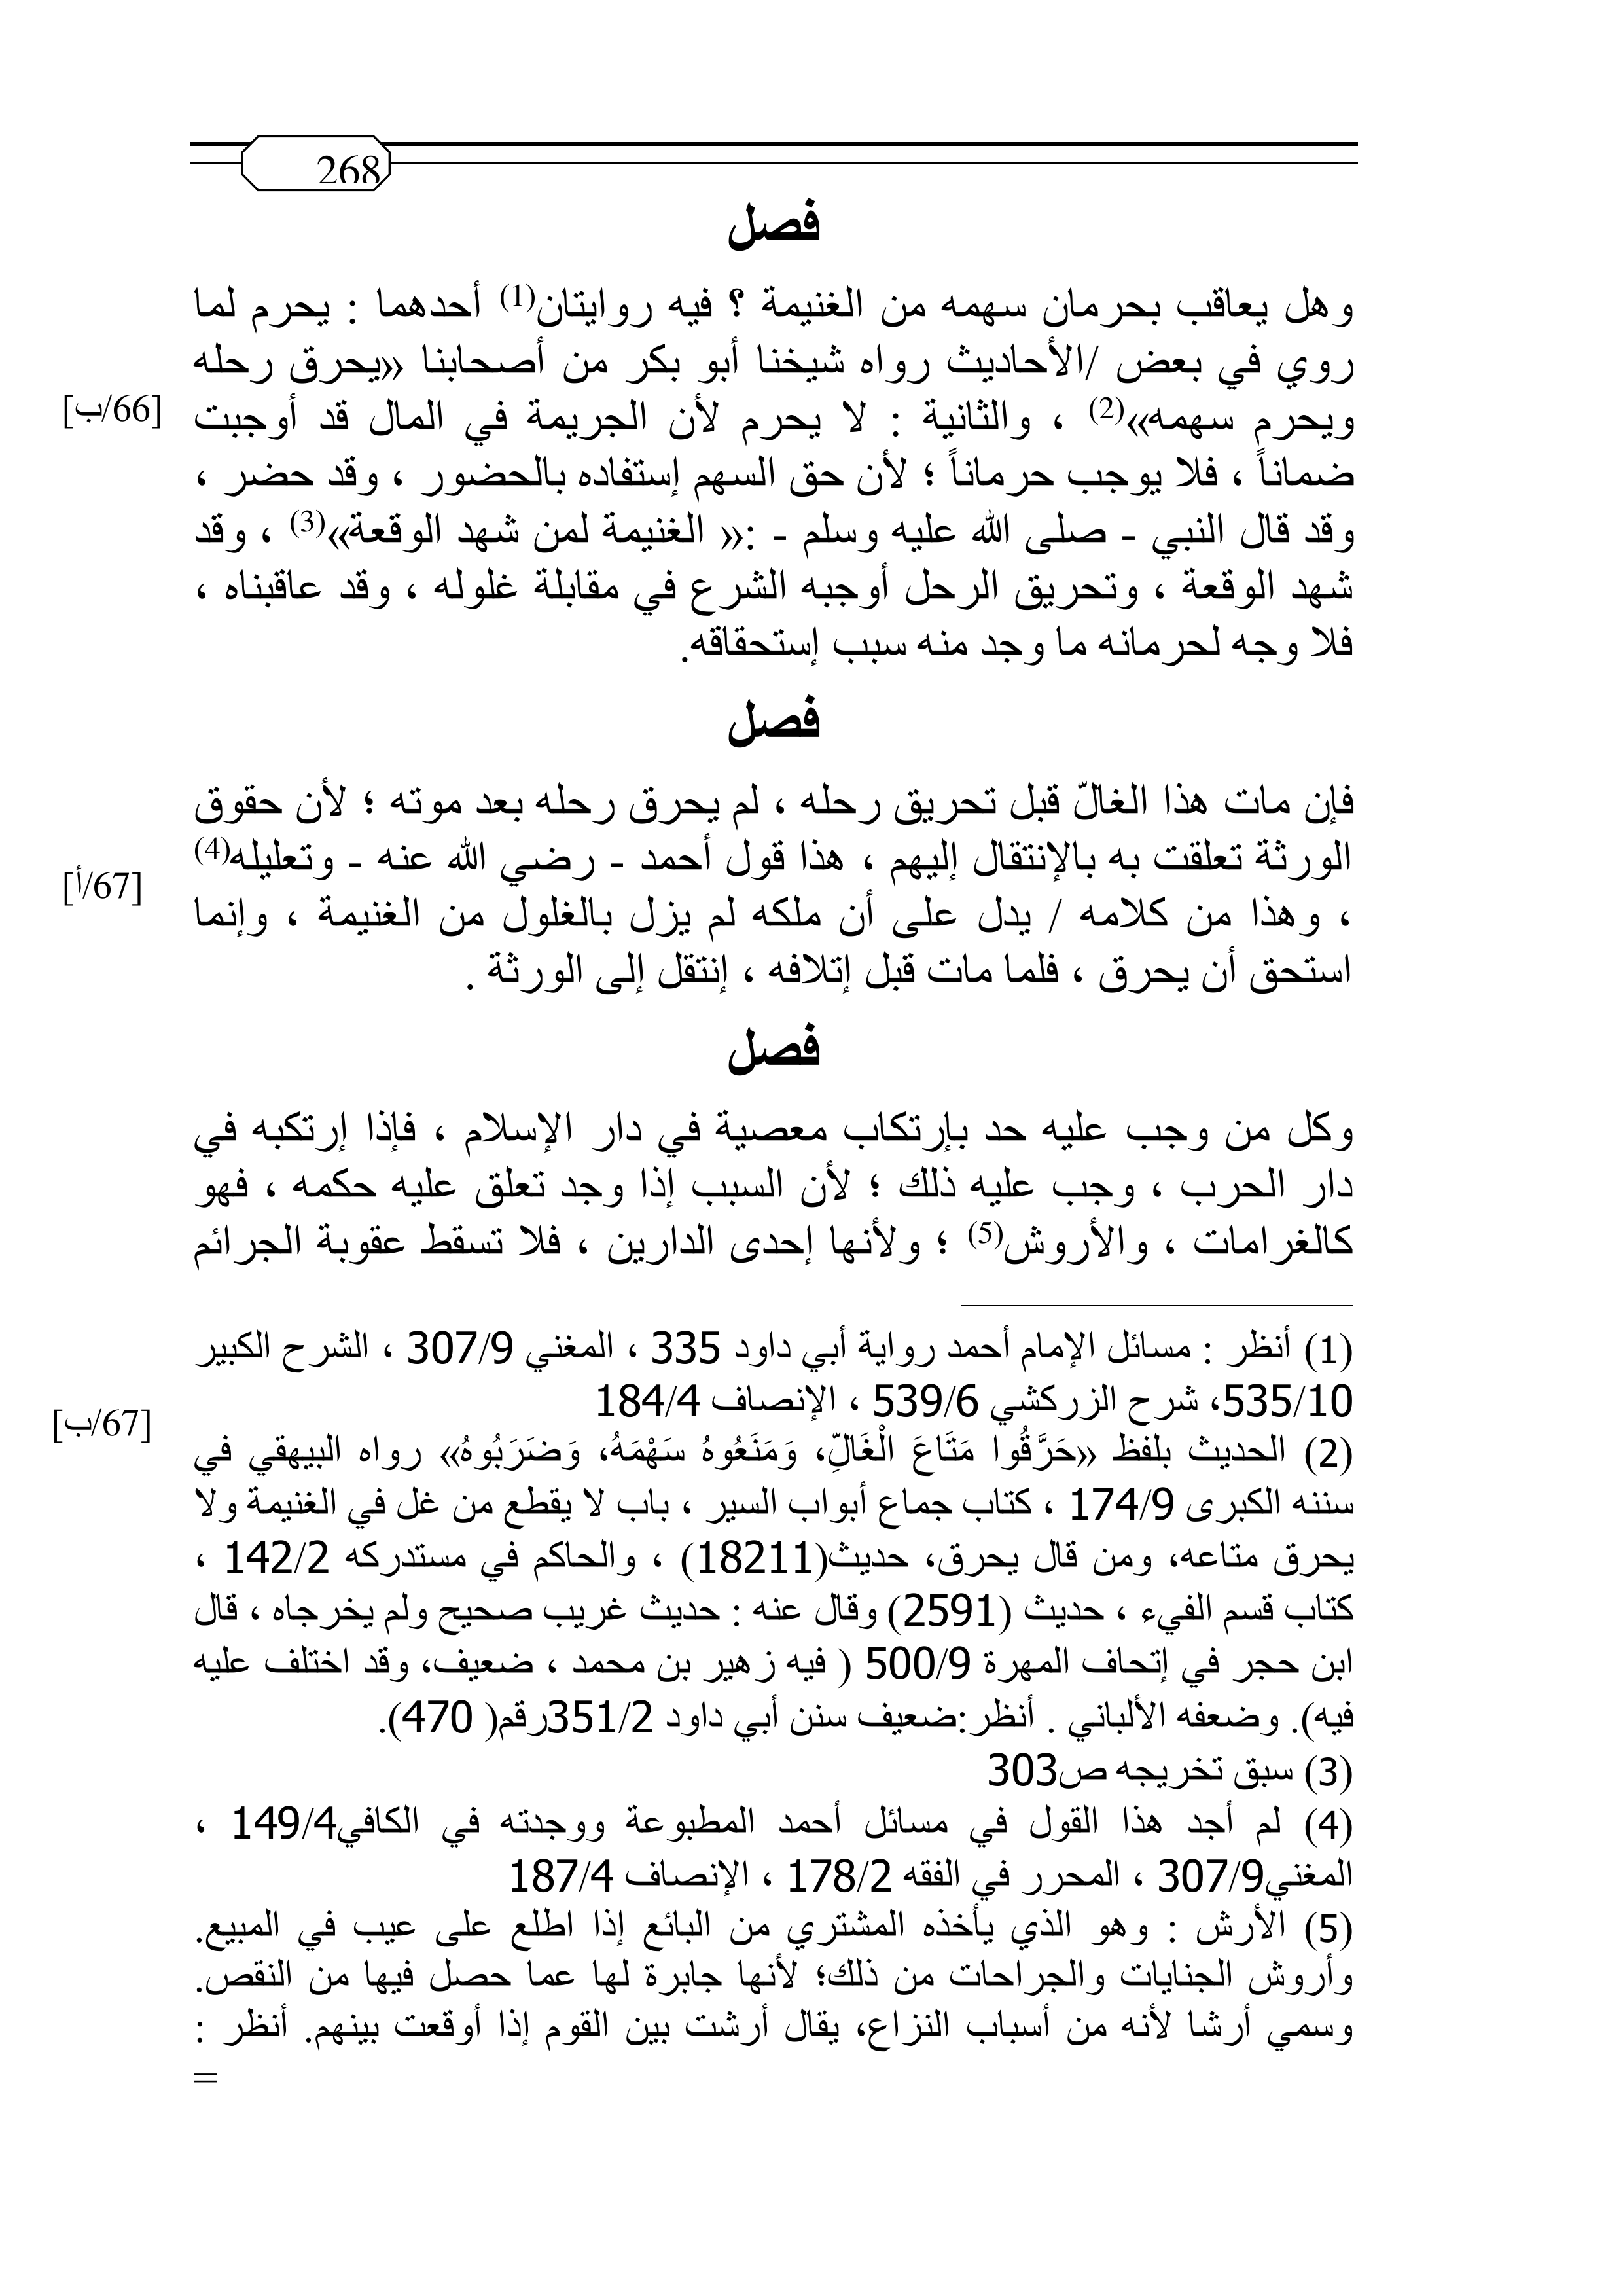 268
فصل
وهل يعاقب بحرمان سهمه من الغنيمة ؟ فيه روايتان(1) أحدهما : يحرم لما
روي في بعض /الأحاديث رواه شيخنا أبو بكر من أصحابنا «يحرق رحله
[66/ب]
ويحرم سهمه»(2) ، والثانية : لا يحرم لأن الجريمة في المال قد أوجبت
ضماناً ، فلا يوجب حرماناً ؛ لأن حق السهم إستفاده بالحضور ، وقد حضر ،
وقد قال النبي - صلى الله عليه وسلم - :« الغنيمة لمن شهد الوقعة»(3) ، وقد
شهد الوقعة ، وتحريق الرحل أوجبه الشرع في مقابلة غلوله ، وقد عاقبناه ،
فلا وجه لحرمانه ما وجد منه سبب إستحقاقه.
فصل
فإن مات هذا الغالّ قبل تحريق رحله ، لم يحرق رحله بعد موته ؛ لأن حقوق
الورثة تعلقت به بالإنتقال إليهم ، هذا قول أحمد - رضي الله عنه - وتعليله(4)
[67/أ]
، وهذا من كلامه / يدل على أن ملكه لم يزل بالغلول من الغنيمة ، وإنما
استحق أن يحرق ، فلما مات قبل إتلافه ، إنتقل إلى الورثة .
فصل
وكل من وجب عليه حد بإرتكاب معصية في دار الإسلام ، فإذا إرتكبه في
دار الحرب ، وجب عليه ذلك ؛ لأن السبب إذا وجد تعلق عليه حكمه ، فهو
كالغرامات ، والأروش(5) ؛ ولأنها إحدى الدارين ، فلا تسقط عقوبة الجرائم
(1) أنظر : مسائل الإمام أحمد رواية أبي داود 335 ، المغني 307/9 ، الشرح الكبير
535/10، شرح الزركشي 539/6 ، الإنصاف 184/4
[67/ب]
(2) الحديث بلفظ «حَرَّقُوا مَتَاعَ الْغَالِّ، وَمَنَعُوهُ سَهْمَهُ، وَضَرَبُوهُ» رواه البيهقي في
سننه الكبرى 174/9 ، كتاب جماع أبواب السير ، باب لا يقطع من غل في الغنيمة ولا
يحرق متاعه، ومن قال يحرق، حديث(18211) ، والحاكم في مستدركه 142/2 ،
كتاب قسم الفيء ، حديث (2591) وقال عنه : حديث غريب صحيح ولم يخرجاه ، قال
ابن حجر في إتحاف المهرة 500/9 ( فيه زهير بن محمد ، ضعيف، وقد اختلف عليه
فيه). وضعفه الألباني . أنظر:ضعيف سنن أبي داود 351/2رقم( 470).
(3) سبق تخريجه ص303
(4) لم أجد هذا القول في مسائل أحمد المطبوعة ووجدته في الكافي149/4 ،
المغني307/9 ، المحرر في الفقه 178/2 ، الإنصاف 187/4
(5) الأرش : وهو الذي يأخذه المشتري من البائع إذا اطلع على عيب في المبيع.
وأروش الجنايات والجراحات من ذلك؛ لأنها جابرة لها عما حصل فيها من النقص.
وسمي أرشا لأنه من أسباب النزاع، يقال أرشت بين القوم إذا أوقعت بينهم. أنظر :
=